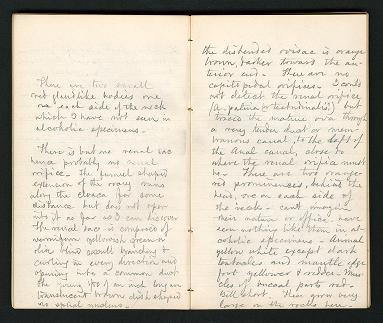 There are two small
red glandlike bodies one
on each side of the neck
which I have not seen in
alcoholic specimens.
There is but one renal sac
hence probably no renal
orifice. The funnel shaped
extension of the ovary runs
along the cloaca for some
distance but does not open
into it as far as I can discover
The renal sac is composed of
vermiform yellowish green or
olive blind canals branching &
curling in every direction and
opening into a common duct
the young 1/8 of an inch long are
translucent brown dish shaped
no spiral nucleus.
the distended ovisac is orange
brown, darker toward the an-
terior end. There are no
capitopedal orifices. I could
not detect the renal orifice
(A. patina or testudinalis) but
traced the mature ova through
a very tender duct or mem-
branous canal, to the left of
the anal canal, close to
where the renal orifice must
be. There are two orange-
red prominences, behind the
head, one on each side of
the neck - cant imagine
their nature or office. have
seen nothing like them in al-
coholic specimens - Animal
yellow white except dark
tentacles and mantle edge
foot yellower & redder. Mus-
cles of buccal parts red.
Bill short. These grow very
large on the rocks here.